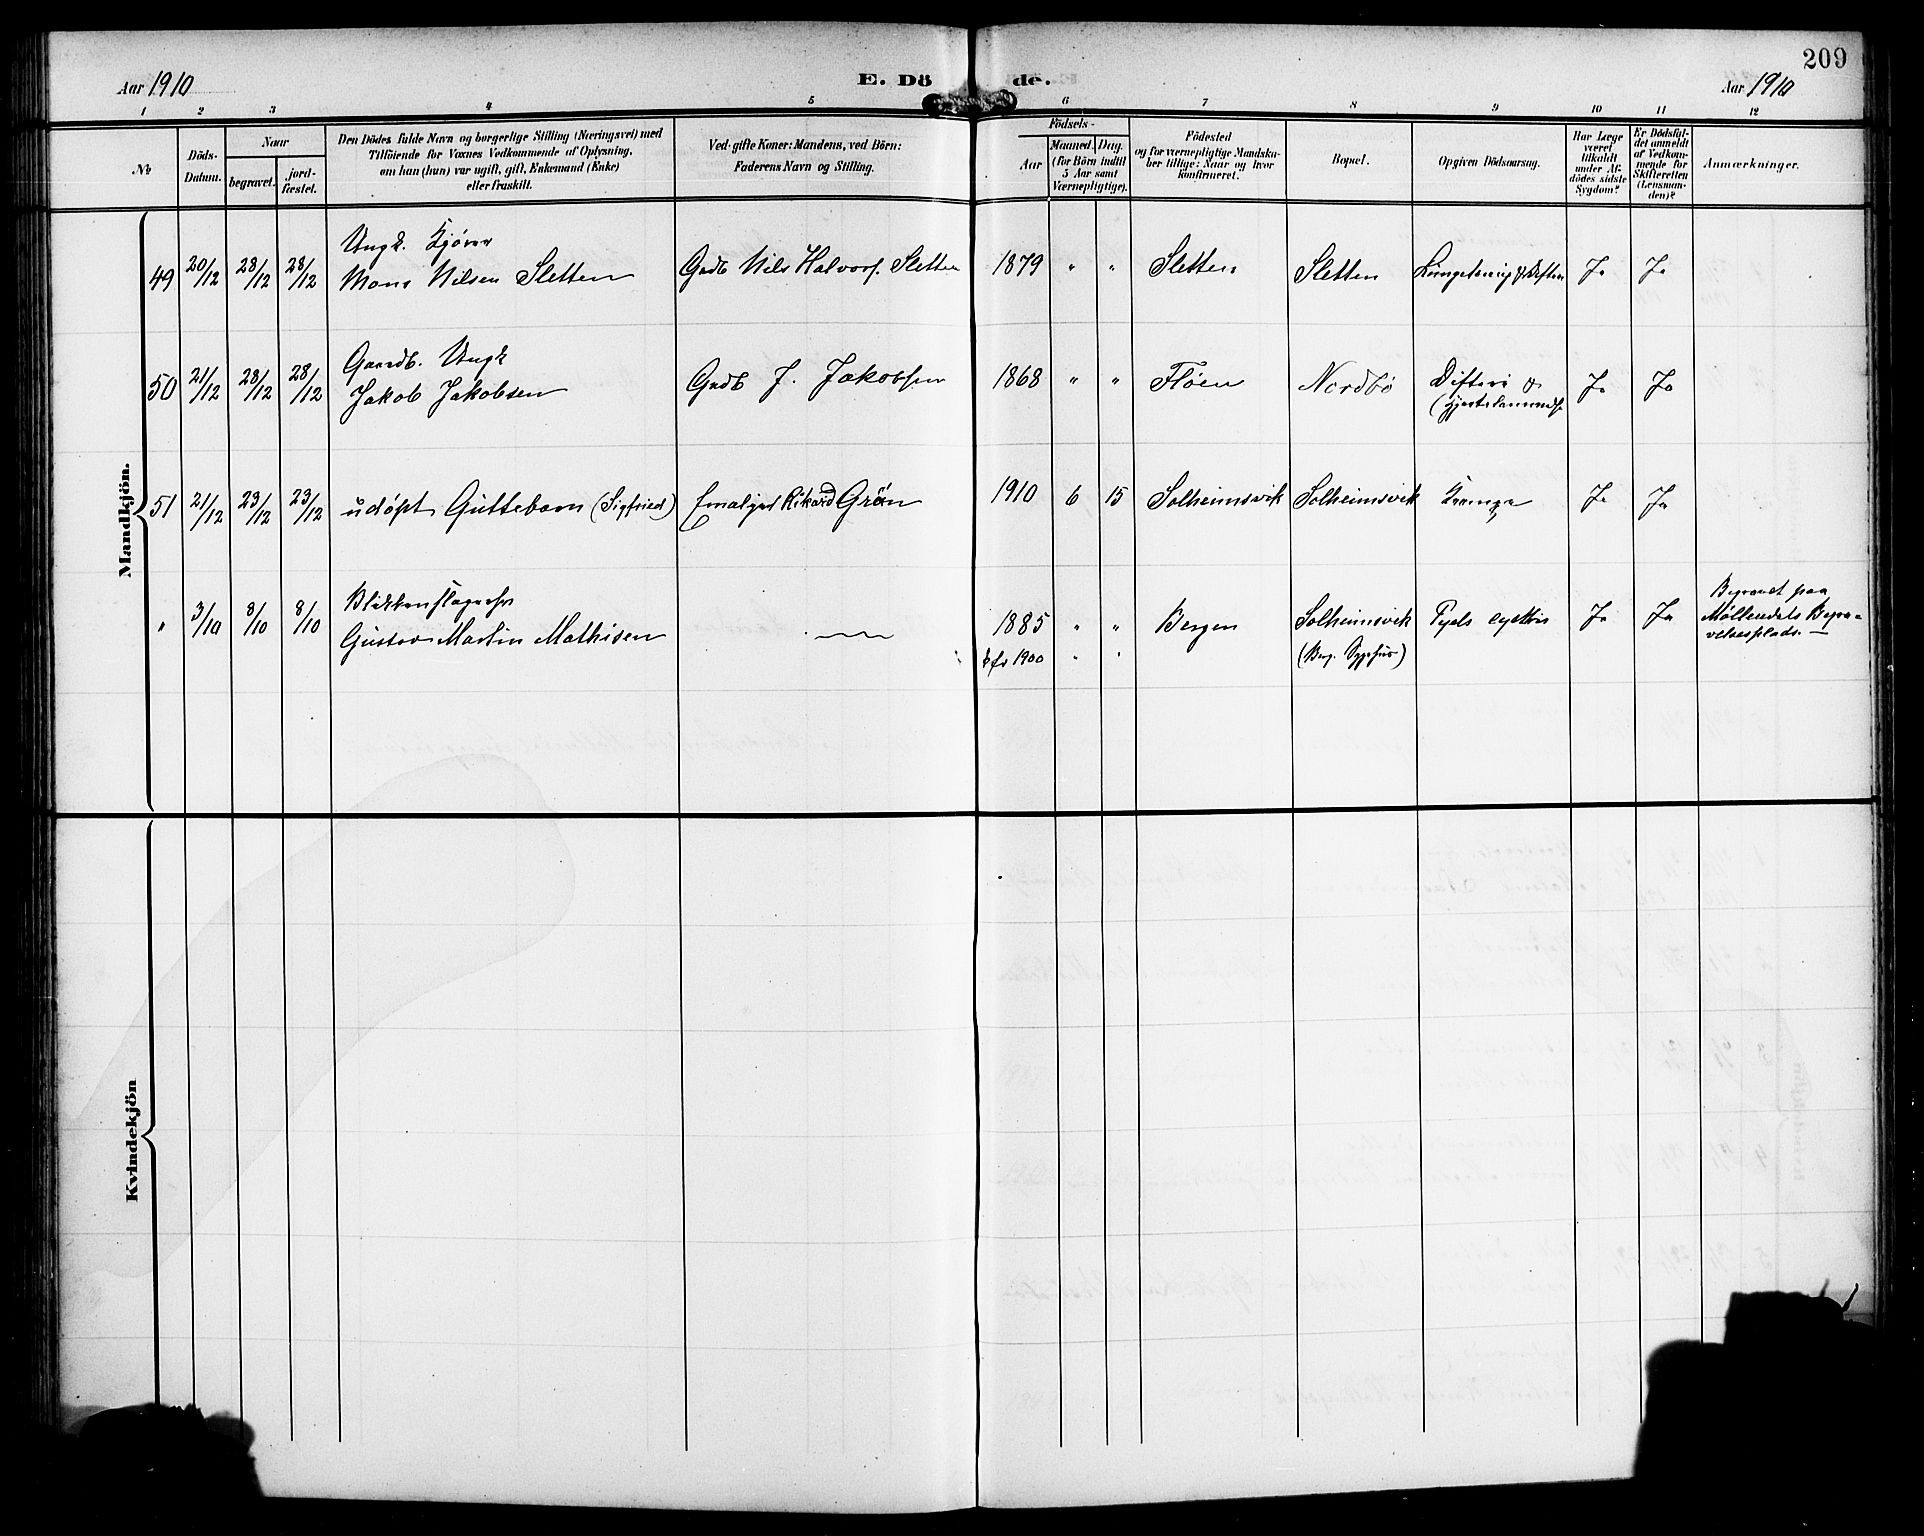 209
Aar 1910
E. Döde.
Aar 1910
1 2 3 4 5 6 7 8 9 10 11 12
No
Döds-
Datum.
Naar
begravet.
jord-
fæstet.
Den Dödes fulde Navn og borgerlige Stilling (Næringsvei) med
Tilföiende for Voxnes Vedkommende af Oplysning,
om han (hun) var ugift, gift, Enkemand (Enke)
eller fraskilt.
Ved gifte Koner: Mandens, ved Börn:
Faderens Navn og Stilling.
Födsels-
Aar
Maaned. Dag.
(for Börn indtil
5 Aar samt
Værnepligtige).
Födested
og for værnepligtige Mandska-
ber tillige: Naar og hvor
konfirmeret.
Bopæl.
Opgiven Dödsaarsag.
Har Læge
været
tilkaldt
under Af-
dödes sidste
Sygdom?
Er Dödsfal-
det anmeldt
af Vedkom-
mende for
Skifteretten
(Lensman-
den)?
Anmærkninger.
Mandkjön.
Ungk. Kjører
49 20/12 28/12 28/12 Mons Nilsen Sletten Gadb Nils Halvors. Sletten 1879 " " Sletten Sletten Ja Ja
Gaardb. Ungk
50 21/12 28/12 28/12 Jakob Jakobsen Gadb J. Jakobsen 1868 " " Fløen Nordbø Difteri & Ja Ja
51 21/12 23/12 23/12 udøpt Guttebarn (Sigfried) Rikard Grøn 1910 6 15 Solheimsvik Solheimsvik Krampe Ja Ja
Blikkenslagersv
" 3/10 8/10 8/10 Gustav Martin Mathisen 1885 " " Bergen Solheimsvik Ja Ja
kfr 1900 " " (Berg. Sygehus)
Begravet paa
Møllendals Begra-
velsesplads. —
Kvindekjön